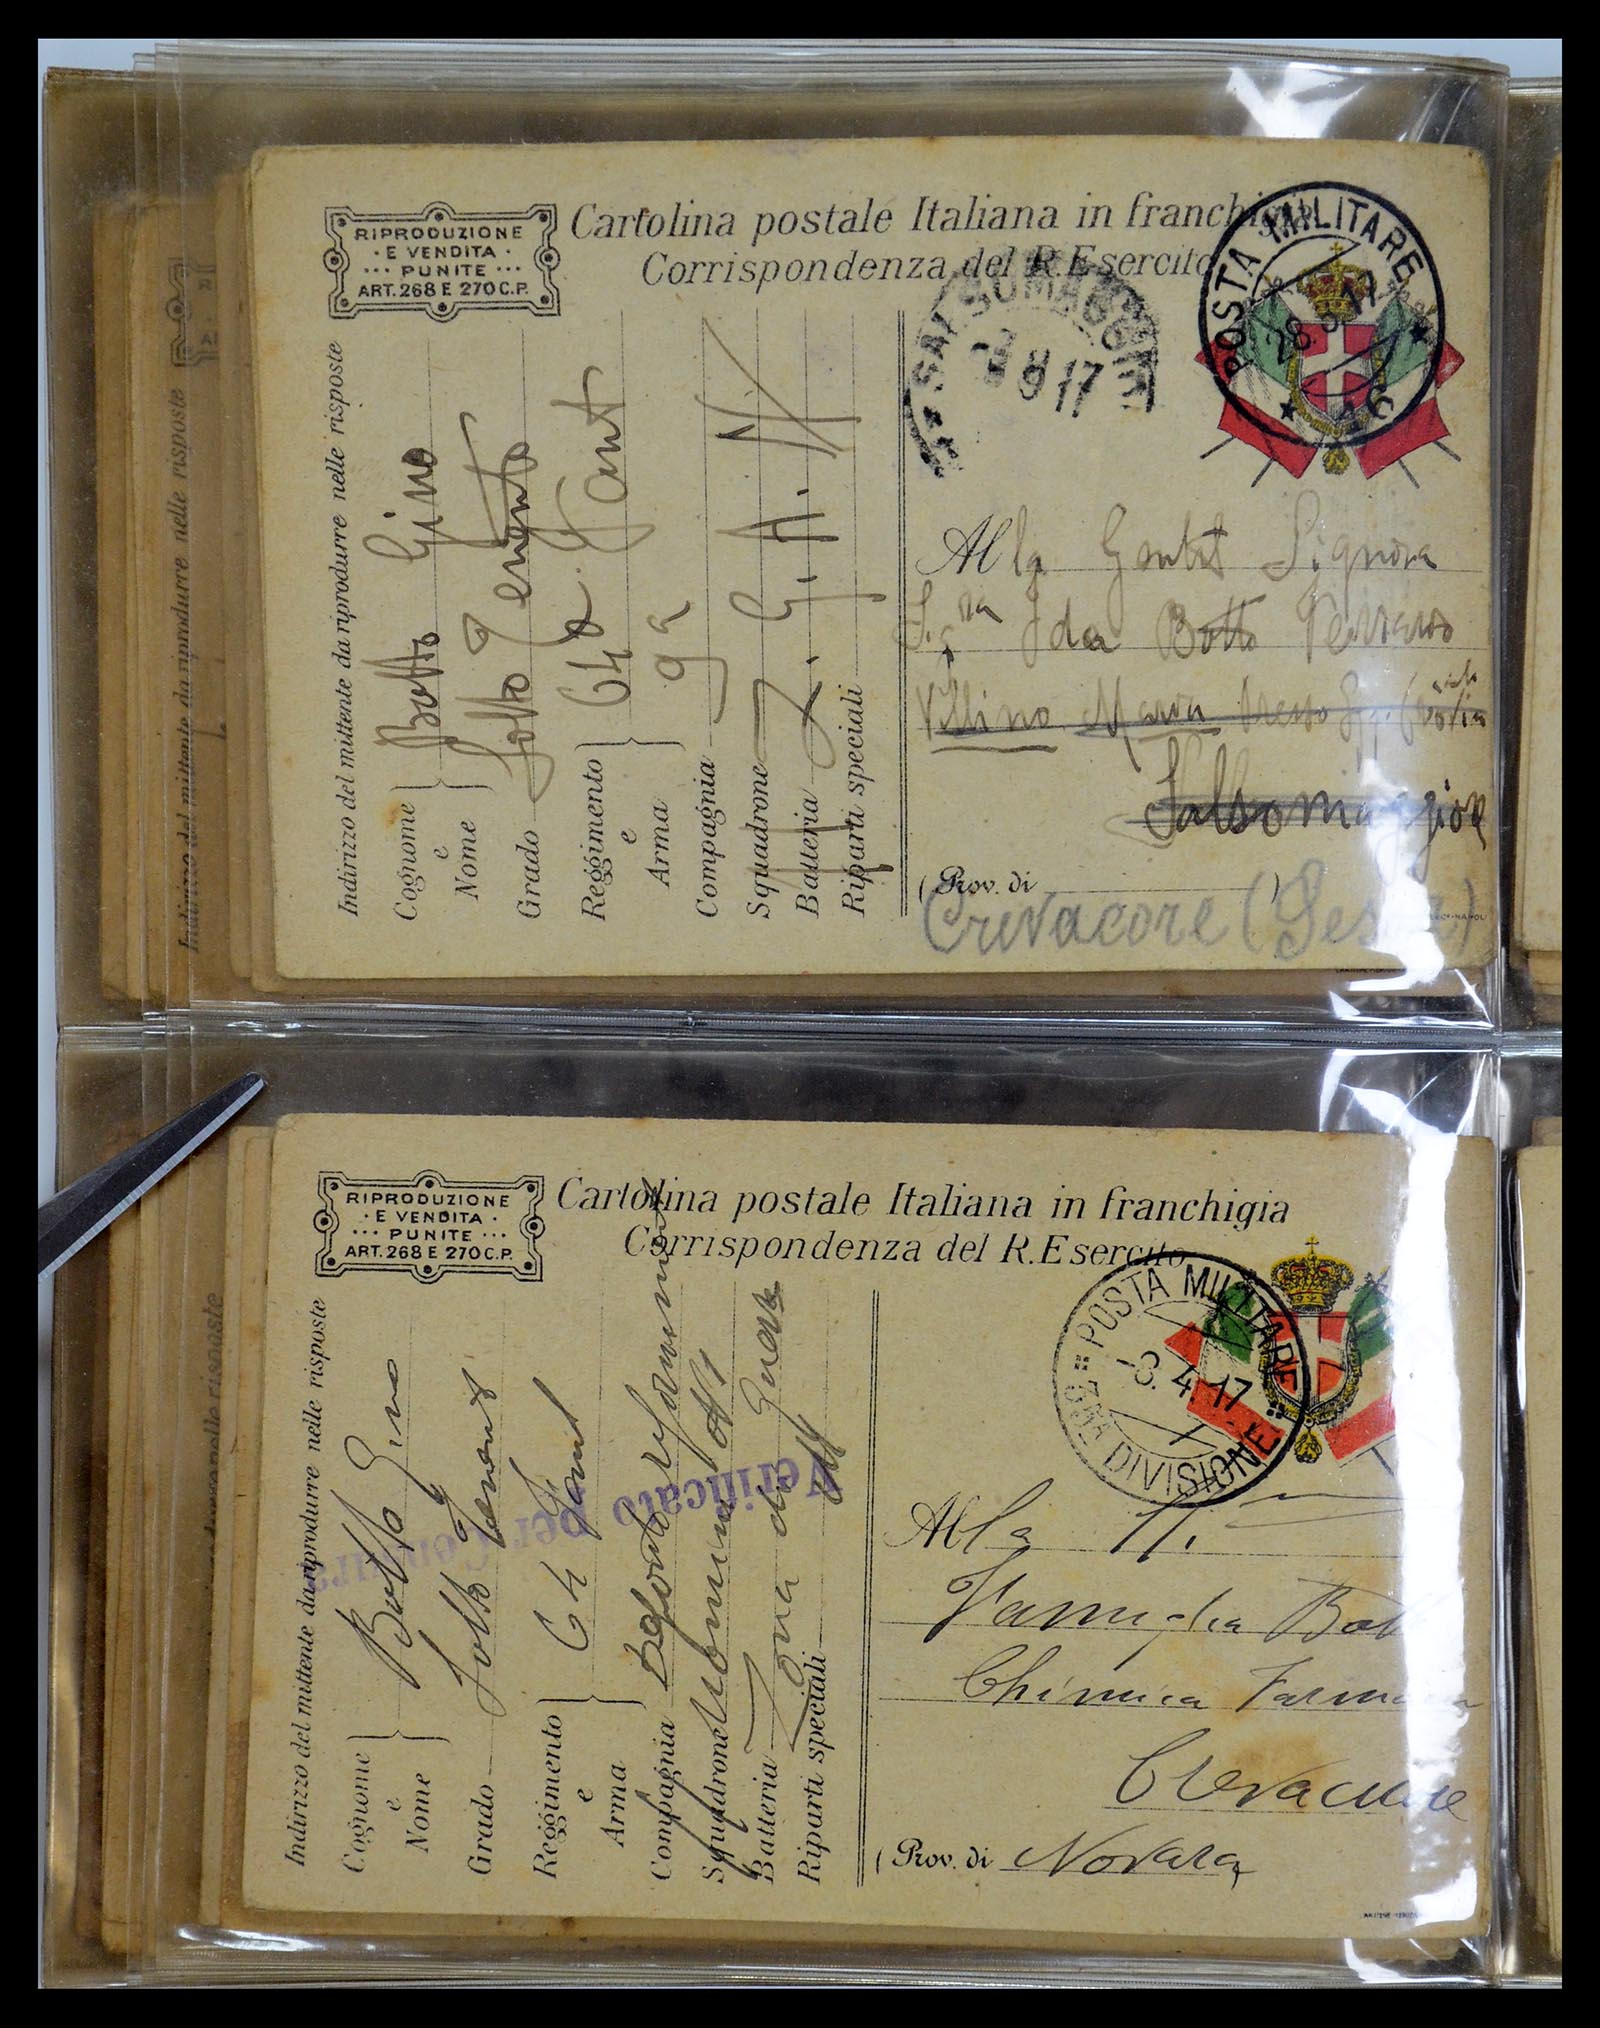 RIPRODUZIONE
· E VENDITA ·
··· PUNITE ···
ART. 268 E 270 C.P.
Cartolina postale Italiana in franchigia
Corrispondenza del R. Esercito
POSTA MILITARE
28 8 17
SALSOMAGGIORE
9 17
Indirizzo del mittente da riprodurre nelle risposte
Cognome e Nome Botto Gino
Grado Sotto Tenente
Reggimento e Arma 64 Fant
Compagnia 9a
Squadrone
Batteria Z. G. A. N
Riparti speciali
Alla Gentil Signora
S.ra Ida Botto Ferraro
Villino Maria presso
Salsomaggiore
(Prov. di )
Crevacore
Indirizzo del mittente da riprodurre nelle risposte
RIPRODUZIONE
· E VENDITA ·
··· PUNITE ···
ART. 268 E 270 C.P.
Cartolina postale Italiana in franchigia
Corrispondenza del R. Esercito
POSTA MILITARE
8. 4. 17
DIVISIONE
Verificato per Censura
Indirizzo del mittente da riprodurre nelle risposte
Cognome e Nome Botto Gino
Grado Sotto Tenente
Reggimento e Arma 64 Fant
Compagnia
Squadrone
Batteria Zona di Guerra
Riparti speciali
Alla
Famiglia Botto
Chimica Farmacia
Crevacuore
(Prov. di Novara